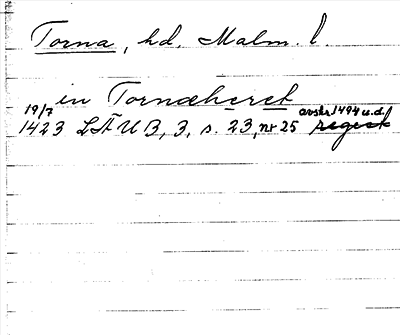 Torna, hd. Malm. l.
in Tornæheret
19/7 avskr. 1494 u.d.
1423 LÄUB, 3, s. 23, nr 25 regest